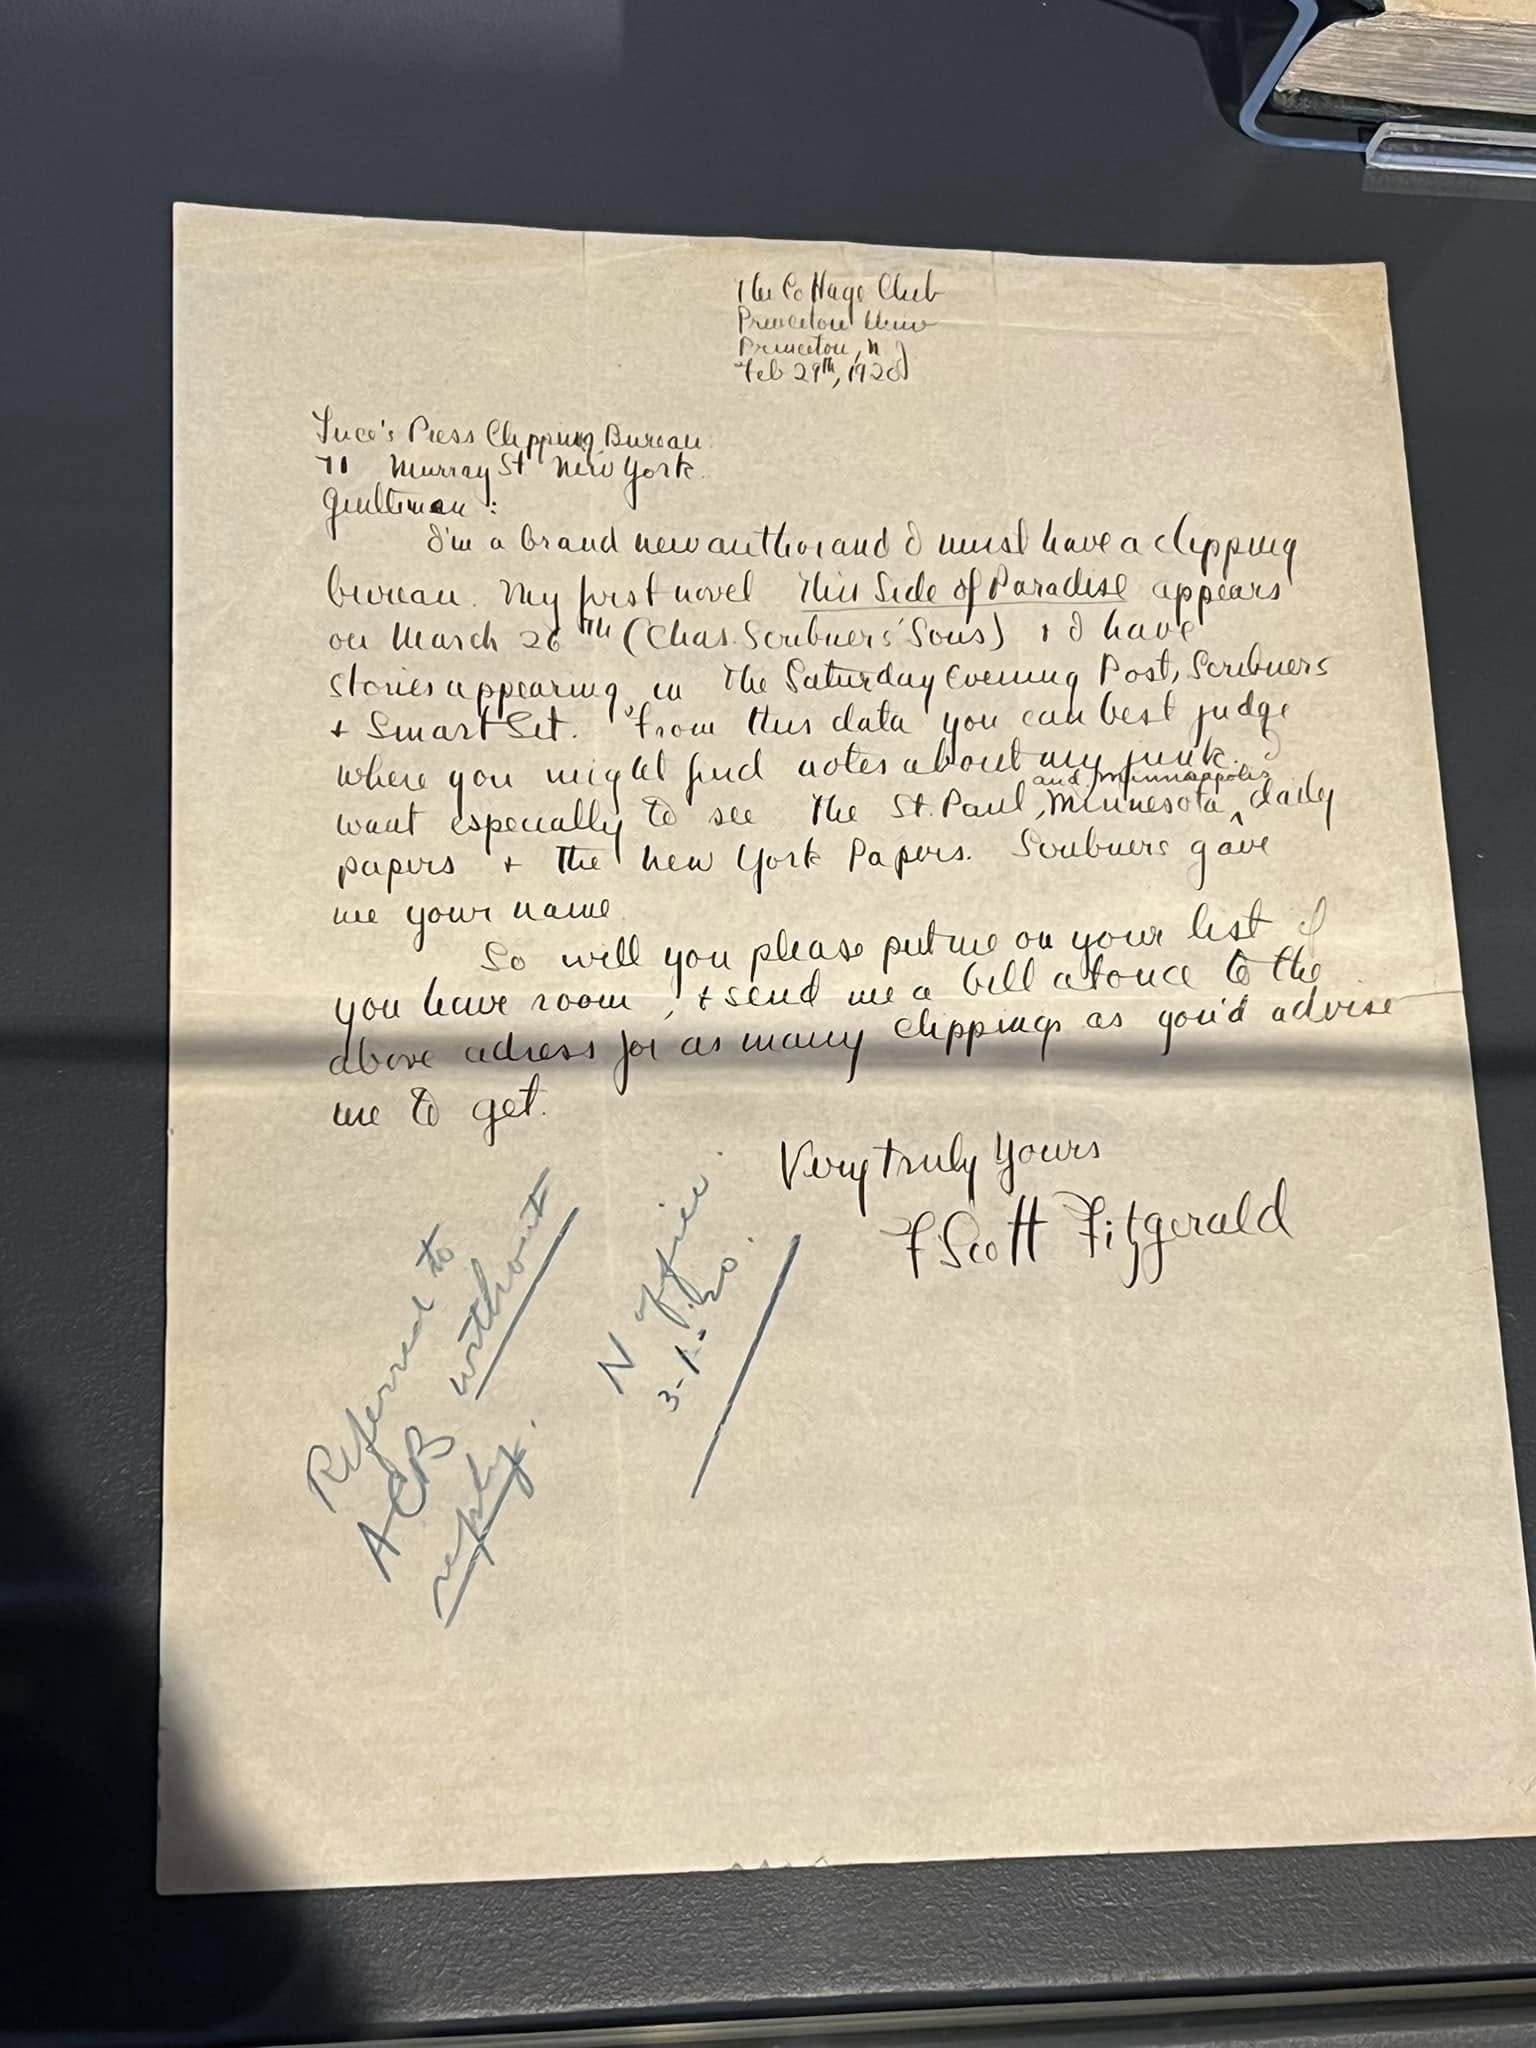 The Cottage Club
Princeton Univ
Princeton, N J
Feb 29th, 1920
Luce's Press Clipping Bureau.
71 Murray St New York.
Gentlemen :
I'm a brand new author and I must have a clipping
bureau. My first novel This Side of Paradise appears
on March 26th (Chas. Scribners' Sons) + I have
stories appearing in The Saturday Evening Post, Scribners
+ Smart Set. From this data you can best judge
where you might find notes about my junk. I
and Minneapolis
want especially to see the St. Paul, Minnesota ^ daily
papers + the New York Papers. Scribners gave
me your name
So will you please put me on your list if
you have room, + send me a bill at once to the
above adress for as many clippings as you'd advise
me to get.
Very truly Yours
F Scott Fitzgerald
Referred to
ACB without
reply.
N office.
3-1-20.